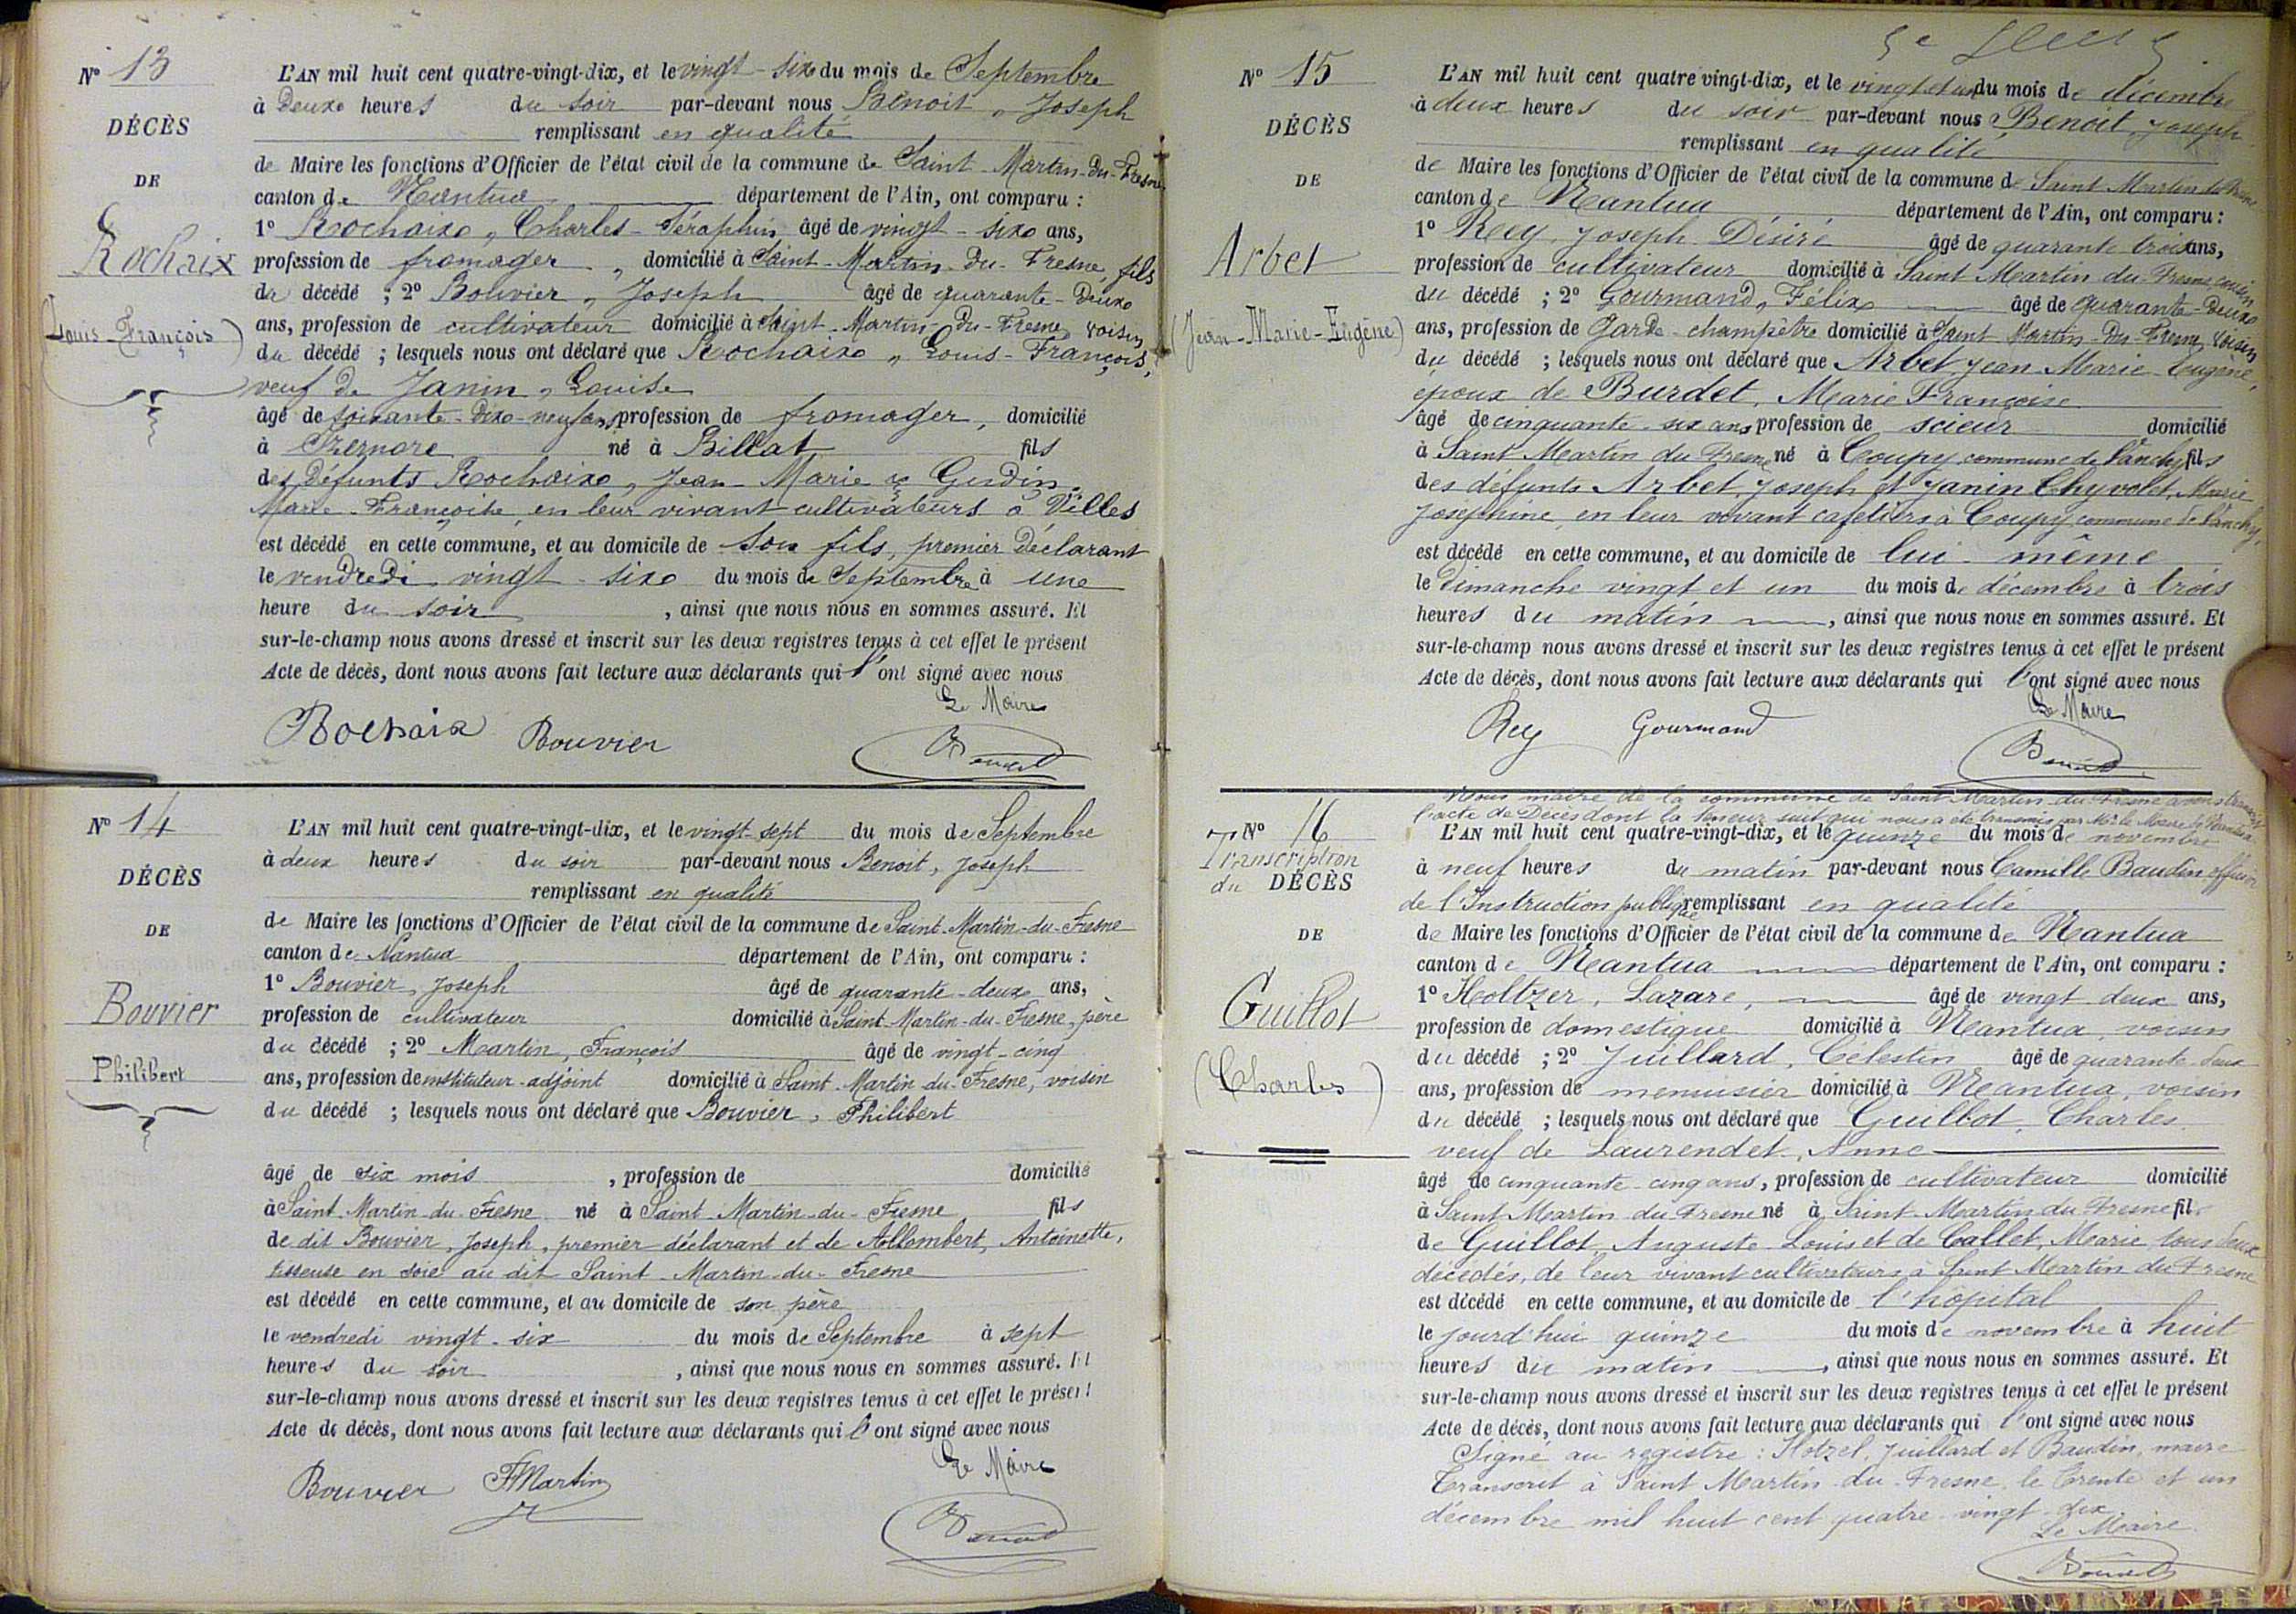 Nº 13
DÉCÈS
DE
Rochaix
(Louis-François)
L'AN mil huit cent quatre-vingt-dix, et le vingt-six du mois de Septembre
à Deux heures du soir par-devant nous Benoit, Joseph
remplissant en qualité
de Maire les fonctions d'Officier de l'état civil de la commune de Saint-Martin-Du-Fresne
canton de Nantua département de l'Ain, ont comparu :
1º Rochaix, Charles-Séraphin âgé de vingt-six ans,
profession de fromager, domicilié à Saint-Martin-Du-Fresne, fils
du décédé ; 2º Bouvier, Joseph âgé de quarante-Deux
ans, profession de cultivateur domicilié à Saint-Martin-Du-Fresne, voisin
du décédé ; lesquels nous ont déclaré que Rochaix, Louis-François,
veuf De Janin, Louise
âgé de soixante-Dix-neuf ans, profession de fromager, domicilié
à né à Billiat fils
des Défunts Rochaix, Jean-Marie & Gudin,
Marie-Françoise, en leur vivant cultivateurs à Villes
est décédé en cette commune, et au domicile de son fils, premier Déclarant
le vendredi vingt-six du mois de Septembre à une
heure du soir, ainsi que nous nous en sommes assuré. Et
sur-le-champ nous avons dressé et inscrit sur les deux registres tenus à cet effet le présent
Acte de décès, dont nous avons fait lecture aux déclarants qui l'ont signé avec nous
Le Maire
Rochaix Bouvier Benoit
Nº 14
DÉCÈS
DE
Bouvier
Philibert
L'AN mil huit cent quatre-vingt-dix, et le vingt-sept du mois de Septembre
à deux heures du soir par-devant nous Benoit, Joseph
remplissant en qualité
de Maire les fonctions d'Officier de l'état civil de la commune de Saint-Martin-du-Fresne
canton de Nantua département de l'Ain, ont comparu :
1º Bouvier, Joseph âgé de quarante-deux ans,
profession de cultivateur domicilié à Saint-Martin-du-Fresne, père
du décédé ; 2º Martin, François âgé de vingt-cinq
ans, profession de instituteur-adjoint domicilié à Saint-Martin-du-Fresne, voisin
du décédé ; lesquels nous ont déclaré que Bouvier, Philibert
âgé de six mois, profession de domicilié
à Saint-Martin-du-Fresne né à Saint-Martin-du-Fresne fils
de dit Bouvier, Joseph, premier déclarant et de Allombert, Antoinette,
tisseuse en soie au dit Saint-Martin-du-Fresne
est décédé en cette commune, et au domicile de son père
le vendredi vingt-six du mois de Septembre à sept
heures du soir, ainsi que nous nous en sommes assuré. Et
sur-le-champ nous avons dressé et inscrit sur les deux registres tenus à cet effet le présent
Acte de décès, dont nous avons fait lecture aux déclarants qui l'ont signé avec nous
Le Maire
Bouvier FMartin Benoit
Nº 15
DÉCÈS
DE
Arbet
(Jean-Marie-Eugène)
L'AN mil huit cent quatre vingt-dix, et le vingt et un du mois de décembre
à deux heures du soir par-devant nous Benoit, Joseph
remplissant en qualité
de Maire les fonctions d'Officier de l'état civil de la commune de Saint Martin du Fresne
canton de Nantua département de l'Ain, ont comparu :
1º Rey, Joseph Désiré âgé de quarante trois ans,
profession de cultivateur domicilié à Saint Martin du Fresne, cousin
du décédé ; 2º Gourmand, Félix âgé de quarante-Deux
ans, profession de Garde-champêtre domicilié à Saint Martin-Du-Fresne, voisin
du décédé ; lesquels nous ont déclaré que Arbet, Jean-Marie-Eugène,
époux de Burdet, Marie Françoise
âgé de cinquante-six ans profession de scieur domicilié
à Saint Martin du Fresne né à Coupy commune de Vanchy fils
des défunts Arbet, Joseph et Janin Chyvolet, Marie
Joséphine, en leur vivant cafetiers à Coupy commune de Vanchy,
est décédé en cette commune, et au domicile de lui-même
le Dimanche vingt et un du mois de décembre à trois
heures du matin, ainsi que nous nous en sommes assuré. Et
sur-le-champ nous avons dressé et inscrit sur les deux registres tenus à cet effet le présent
Acte de décès, dont nous avons fait lecture aux déclarants qui l'ont signé avec nous
Le Maire
Rey Gourmand Benoit
Nº 16
Transcription
du DÉCÈS
DE
Guillot
(Charles)
Nous maire de la commune de Saint Martin-du-Fresne avons transcrit
l'acte de Décès dont la teneur suit qui nous a été transmis par Mr le Maire de Nantua
L'AN mil huit cent quatre-vingt-dix, et le quinze du mois de novembre
à neuf heures du matin par-devant nous Camille Baudin officier
de l'Instruction publique remplissant en qualité
de Maire les fonctions d'Officier de l'état civil de la commune de Nantua
canton de Nantua département de l'Ain, ont comparu :
1º Holtzer, Lazare, âgé de vingt-deux ans,
profession de domestique domicilié à Nantua, voisin
du décédé ; 2º Juillard, Célestin âgé de quarante-deux
ans, profession de menuisier domicilié à Nantua, voisin
du décédé ; lesquels nous ont déclaré que Guillot, Charles
veuf de Laurendet, Anne
âgé de cinquante-cinq ans, profession de cultivateur domicilié
à Saint Martin du Fresne né à Saint-Martin du Fresne fils
de Guillot Auguste-Louis et de Callet, Marie, tous deux
décédés, de leur vivant cultivateurs à Saint Martin du Fresne
est décédé en cette commune, et au domicile de l'hôpital
le jourd'hui quinze du mois de novembre à huit
heures du matin, ainsi que nous nous en sommes assuré. Et
sur-le-champ nous avons dressé et inscrit sur les deux registres tenus à cet effet le présent
Acte de décès, dont nous avons fait lecture aux déclarants qui l'ont signé avec nous
Signé au registre : Hotzel, Juillard et Baudin, maire
Transcrit à Saint Martin-du-Fresne, le trente et un
décembre mil huit cent quatre-vingt-dix
Le Maire
Benoit